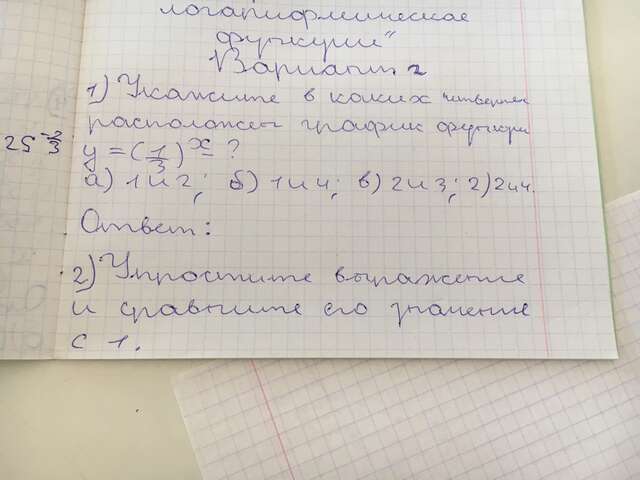 логарифмическая
функция"
Вариант 2
1) Укажите в каких четвертях
расположен график функции
y = (1/3)x = ?
а) 1 и 2; б) 1 и 4; в) 2 и 3; г) 2 и 4.
Ответ:
2) Упростите выражение
и сравните его значение
с 1.
25